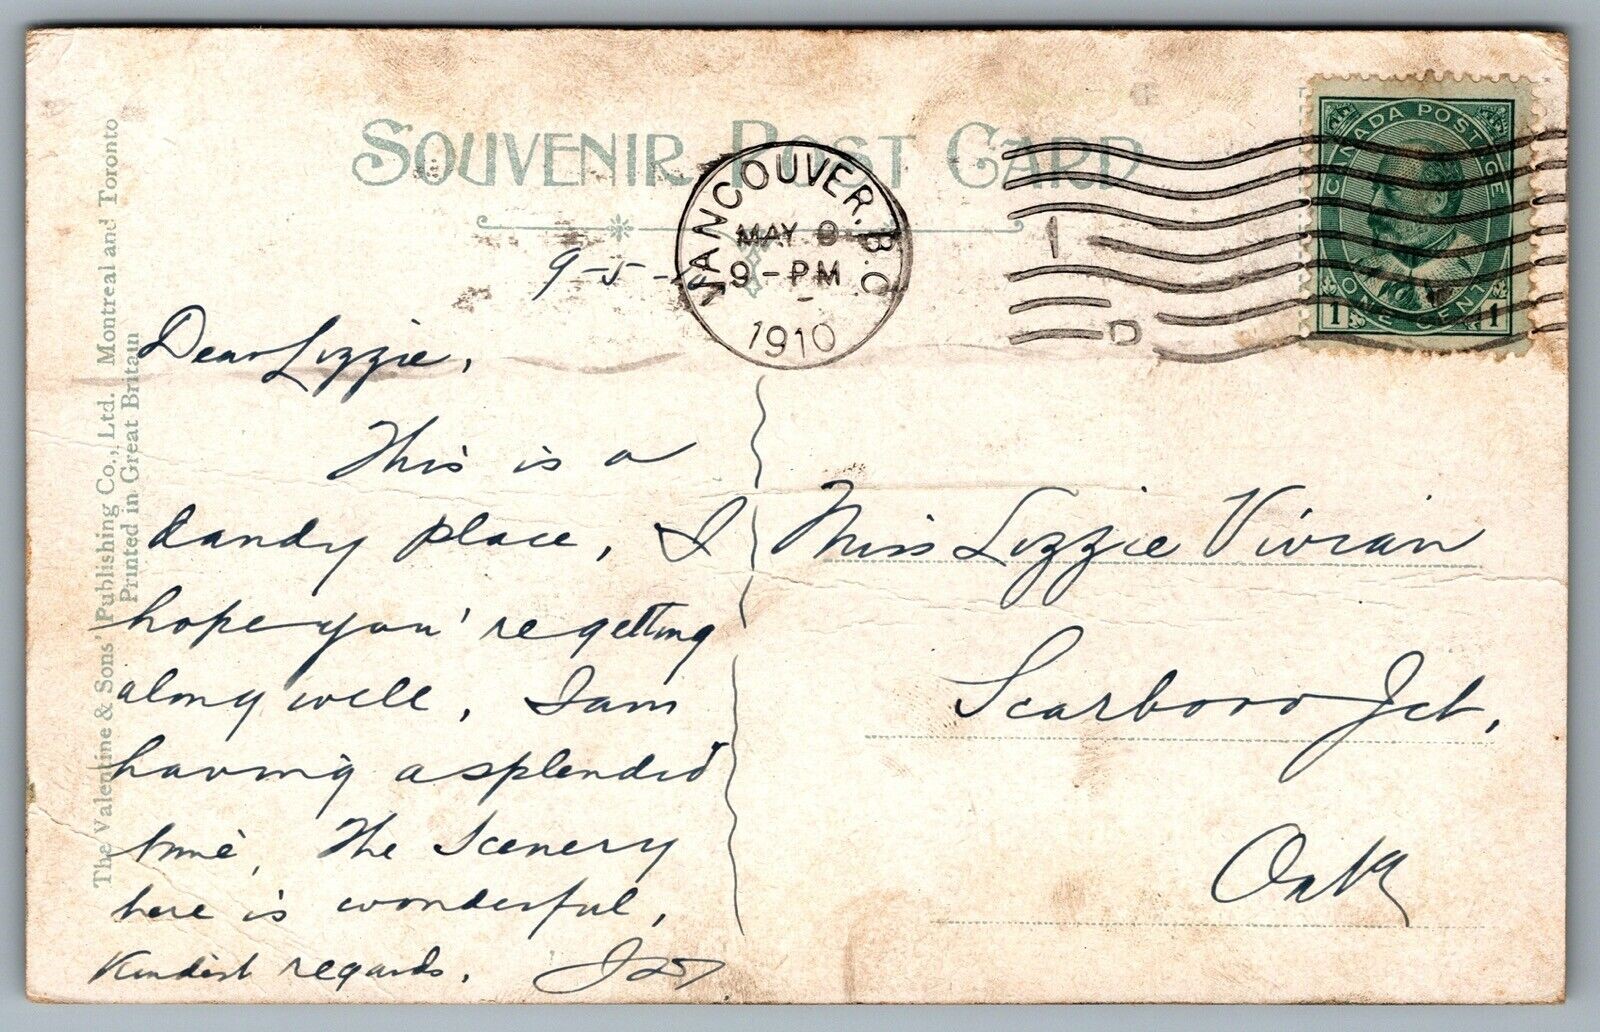 SOUVENIR POST CARD
VANCOUVER. B.C.
MAY 9
9-PM
1910
1
D
CANADA POSTAGE
1 ONE CENT 1
The Valentine & Sons' Publishing Co., Ltd. Montreal and Toronto
Printed in Great Britain
9-5-
Dear Lizzie,
This is a
dandy place, I
hope you're getting
along well, I am
having a splendid
time, The Scenery
here is wonderful,
Kindest regards.
Miss Lizzie Vivian
Scarboro Jct,
Ont